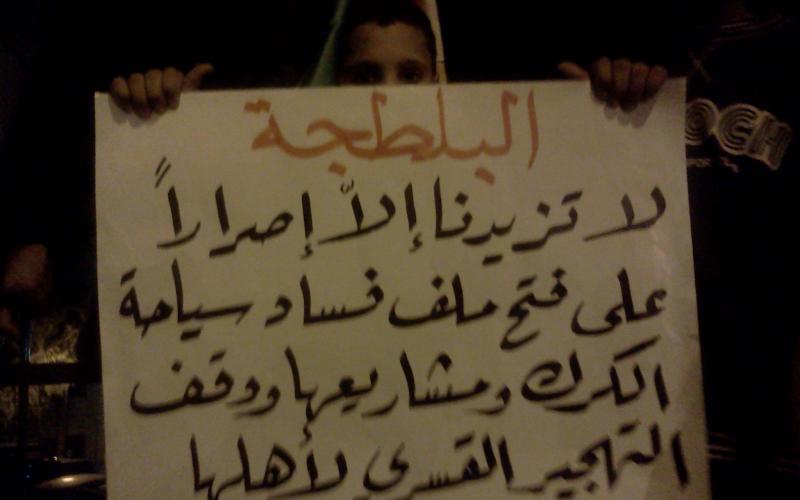 البلطجة
لا تزيدنا إلاّ إصراراً
على فتح ملف فساد سياحة
الكرك ومشاريعها ووقف
التهجير القسري لأهلها
OCH